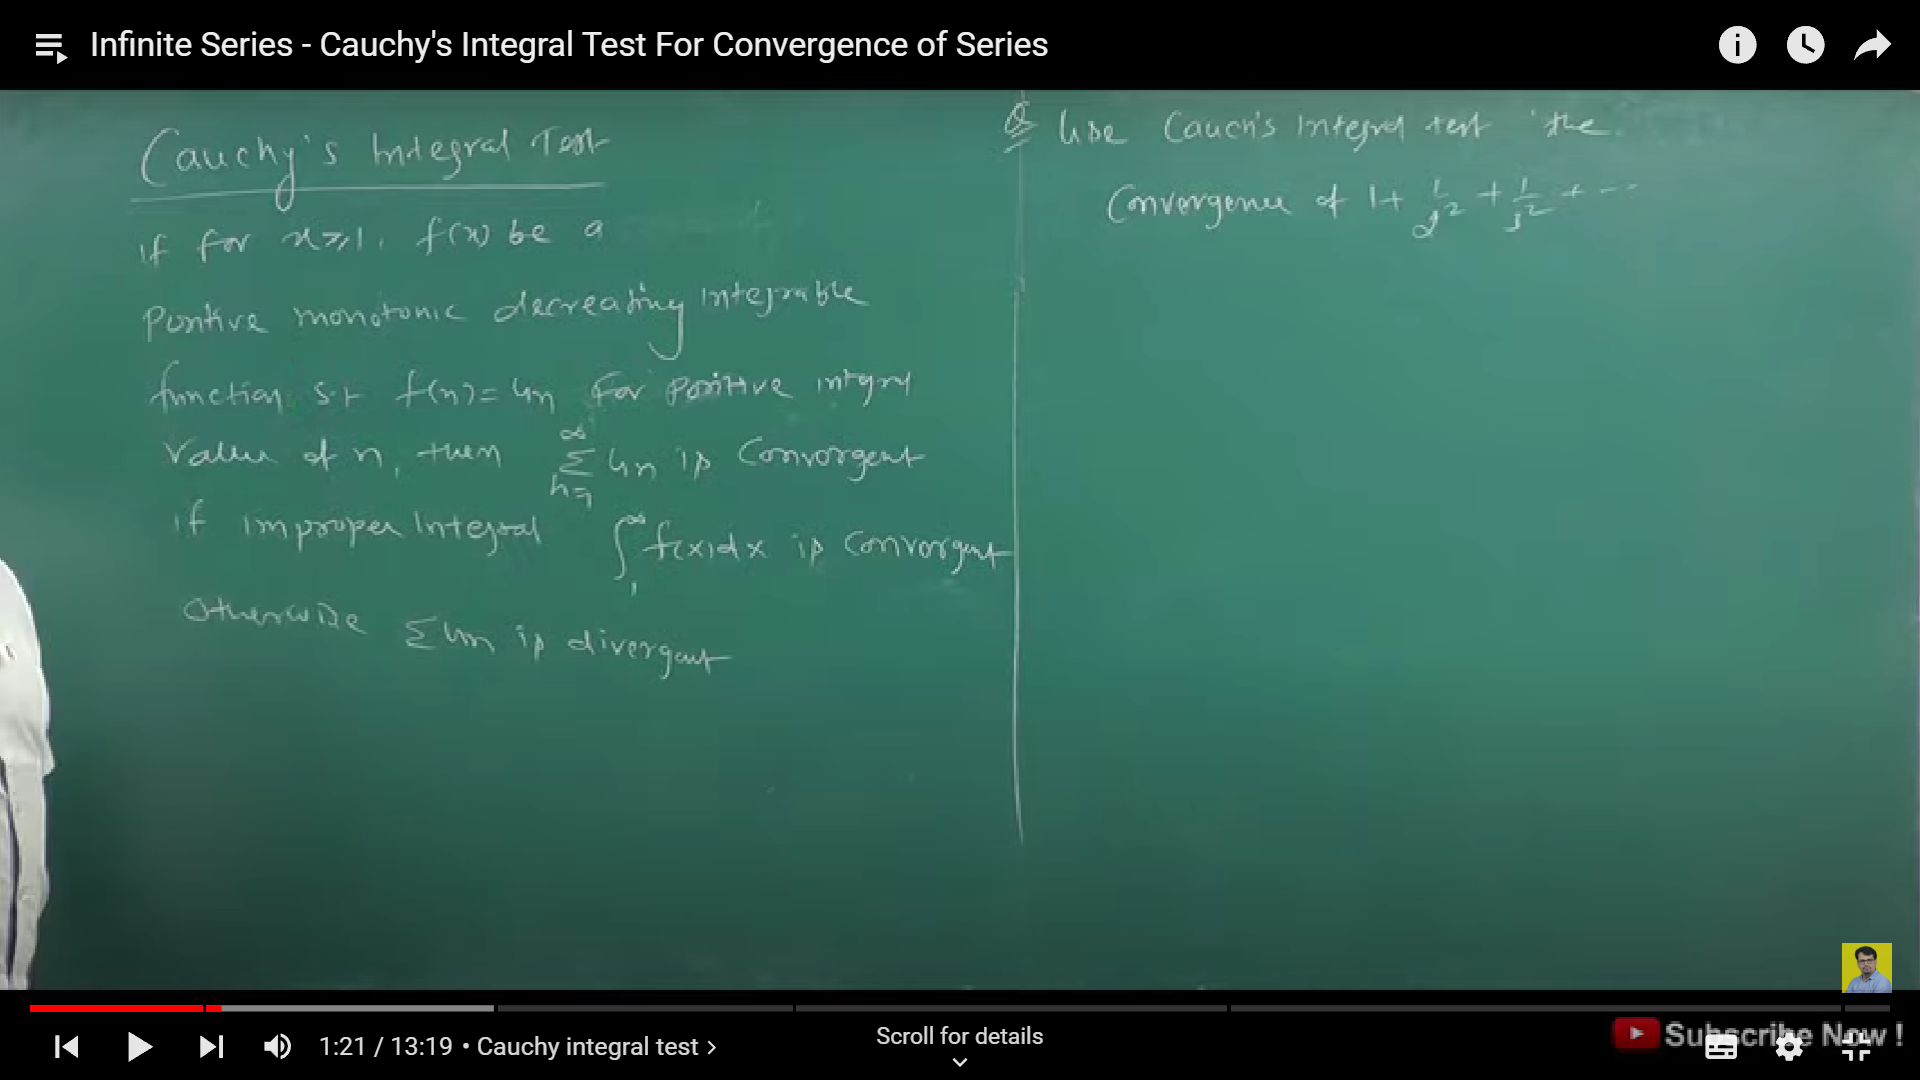 Infinite Series - Cauchy's Integral Test For Convergence of Series
Cauchy's Integral Test
if for x ≥ 1, f(x) be a
Positive monotonic decreasing integrable
function s.t f(n) = un for positive integral
value of n, then ∞ Σ n=1 un is Convergent
if improper Integral ∫1^∞ f(x)dx is Convergent
Otherwise Σun is divergent
Q Use Cauch's Integral test the
Convergence of 1 + 1/2² + 1/3² + ---
1:21 / 13:19 • Cauchy integral test >
Scroll for details
Subscribe Now !